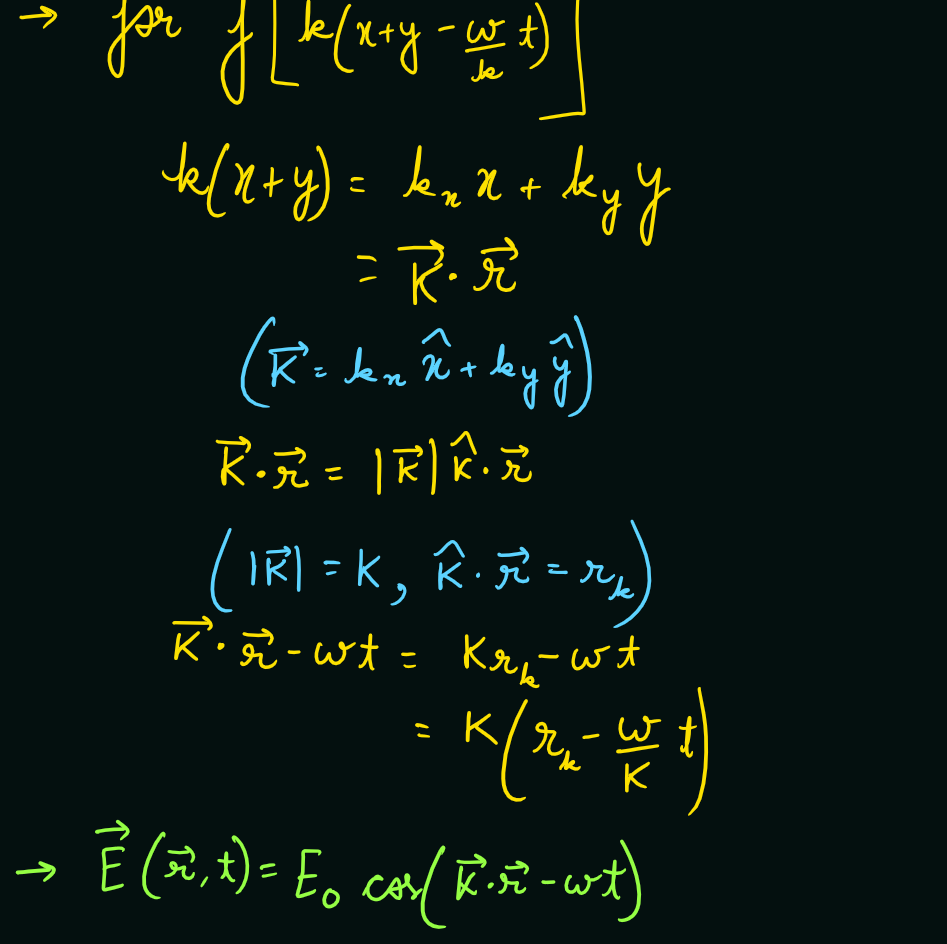 → for f[k(x+y - ω/k t)]
k(x+y) = kₓ x + k_y y
= K⃗ · r⃗
(K⃗ = kₓ x̂ + k_y ŷ)
K⃗ · r⃗ = |K⃗| K̂ · r⃗
(|K⃗| = K, K̂ · r⃗ = r_k)
K⃗ · r⃗ - ωt = K r_k - ωt
= K(r_k - ω/K t)
→ E⃗(r⃗, t) = E₀ cos(K⃗ · r⃗ - ωt)